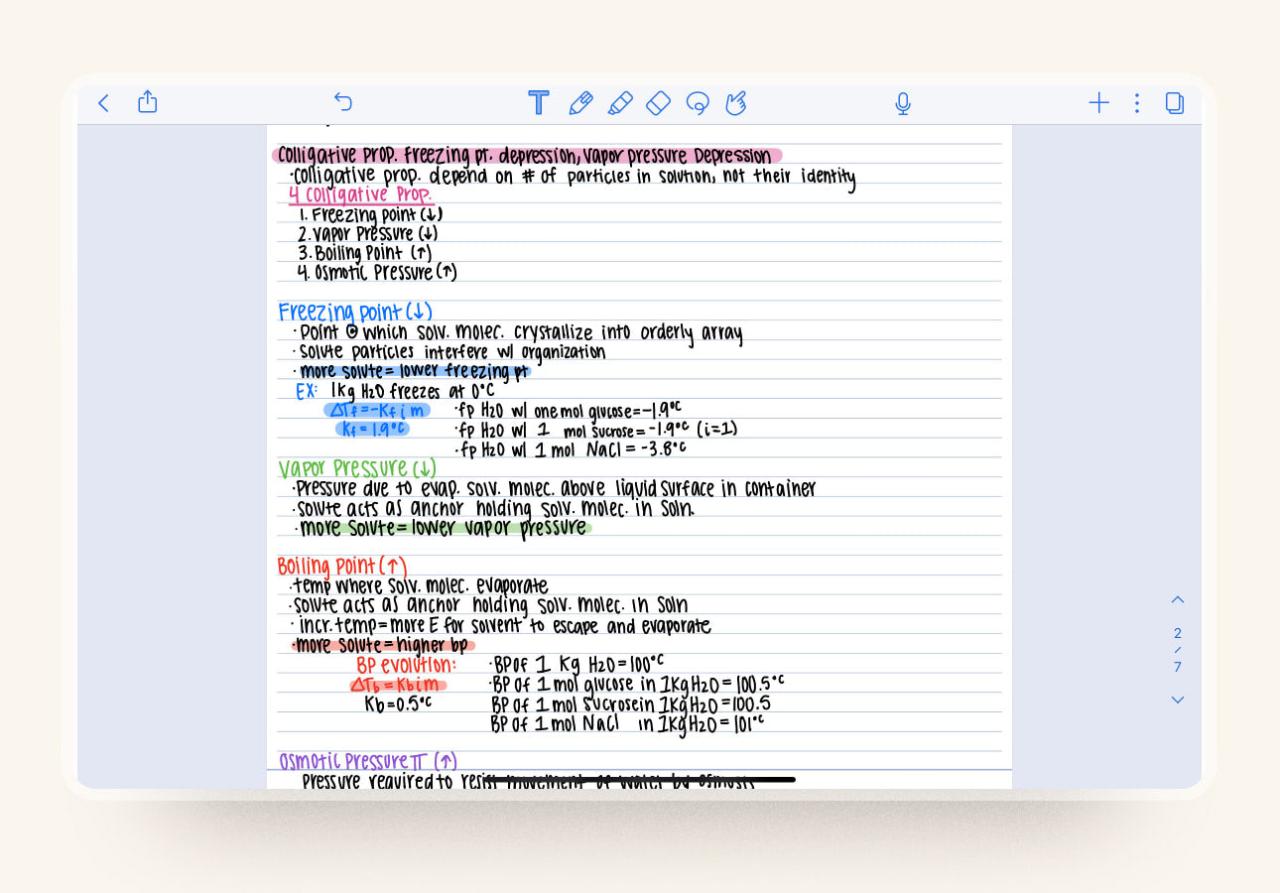 T
Colligative Prop. Freezing pt. depression, Vapor pressure Depression
·Colligative prop. depend on # of particles in solution, not their identity
4 Colligative Prop.
1. Freezing point (↓)
2. Vapor Pressure (↓)
3. Boiling Point (↑)
4. Osmotic Pressure (↑)
Freezing point (↓)
·Point @ which solv. molec. crystallize into orderly array
·Solute particles interfere w/ organization
·more solute = lower freezing pt
EX: 1kg H2O freezes at 0°C
ΔTf = -Kf i m ·fp H2O w/ one mol glucose = -1.9°C
Kf = 1.9°C ·fp H2O w/ 1 mol sucrose = -1.9°C (i=1)
·fp H2O w/ 1 mol NaCl = -3.8°C
Vapor Pressure (↓)
·Pressure due to evap. solv. molec. above liquid surface in container
·solute acts as anchor holding solv. molec. in Soln.
·more Solute = lower vapor pressure
Boiling Point (↑)
·temp where Solv. molec. evaporate
·Solute acts as anchor holding solv. molec. in Soln
·incr. temp = more E for solvent to escape and evaporate
·more solute = higher bp
BP evolution: ·BP of 1 Kg H2O = 100°C
ΔTb = Kb i m ·BP of 1 mol glucose in 1Kg H2O = 100.5°C
Kb = 0.5°C BP of 1 mol Sucrose in 1Kg H2O = 100.5
BP of 1 mol NaCl in 1Kg H2O = 101°C
Osmotic Pressure π (↑)
Pressure required to resist movement of water by osmosis
2
/
7